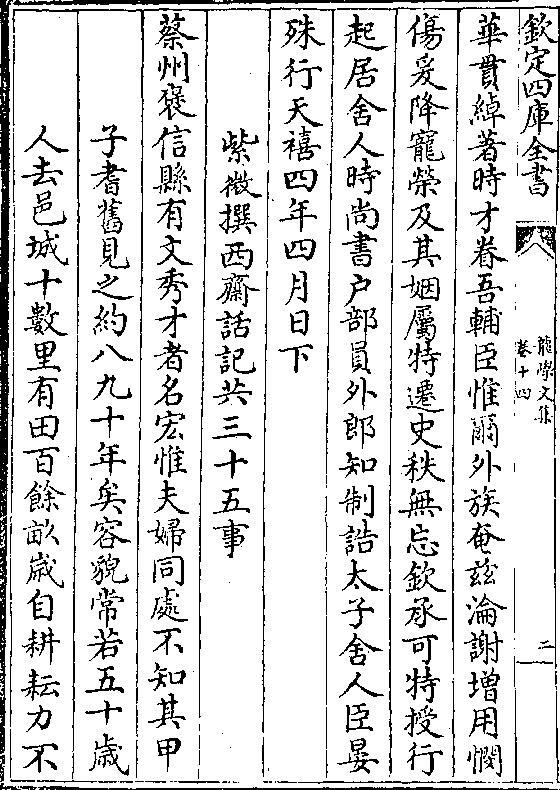 欽定四庫全書
龍學文集
卷十四
二
華貫綽著時才眷吾輔臣惟爾外族奄茲淪謝增用憫
傷爰降寵榮及其姻屬特遷史秩無忘欽承可特授行
起居舍人時尚書户部員外郎知制誥太子舍人臣晏
殊行天禧四年四月日下
紫微撰西齋話記共三十五事
蔡州襃信縣有文秀才者名宏惟夫婦同處不知其甲
子耆舊見之約八九十年矣容貌常若五十歲
人去邑城十數里有田百餘畝歲自耕耘力不